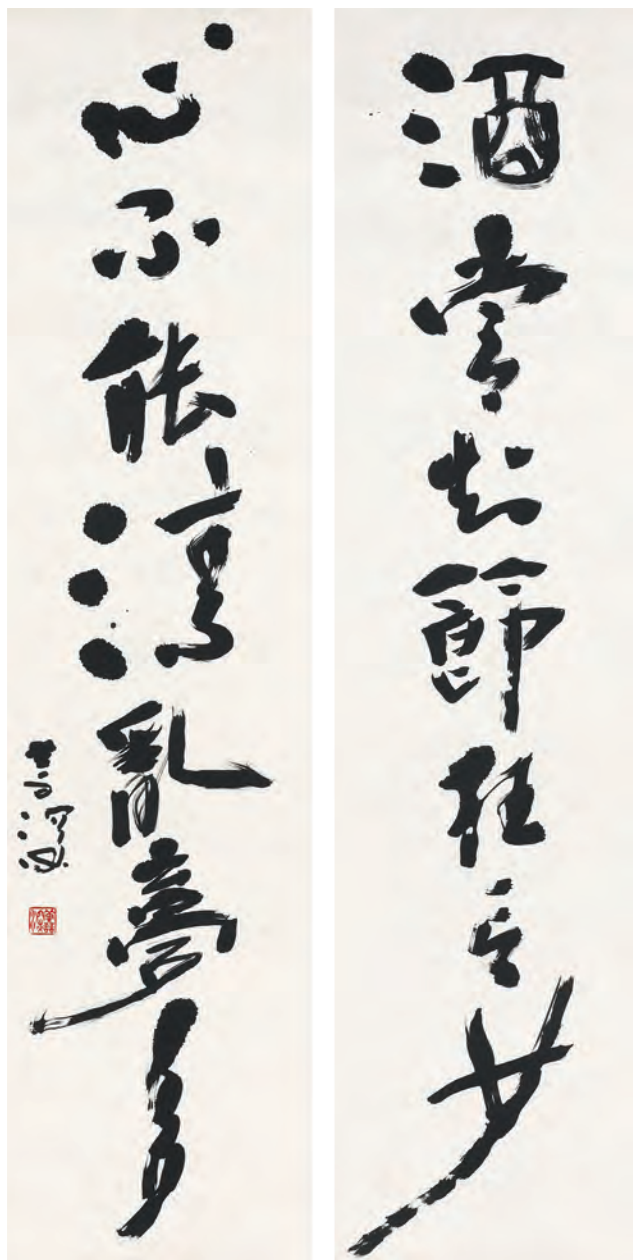 酒常知節狂言少
心不能清亂夢多